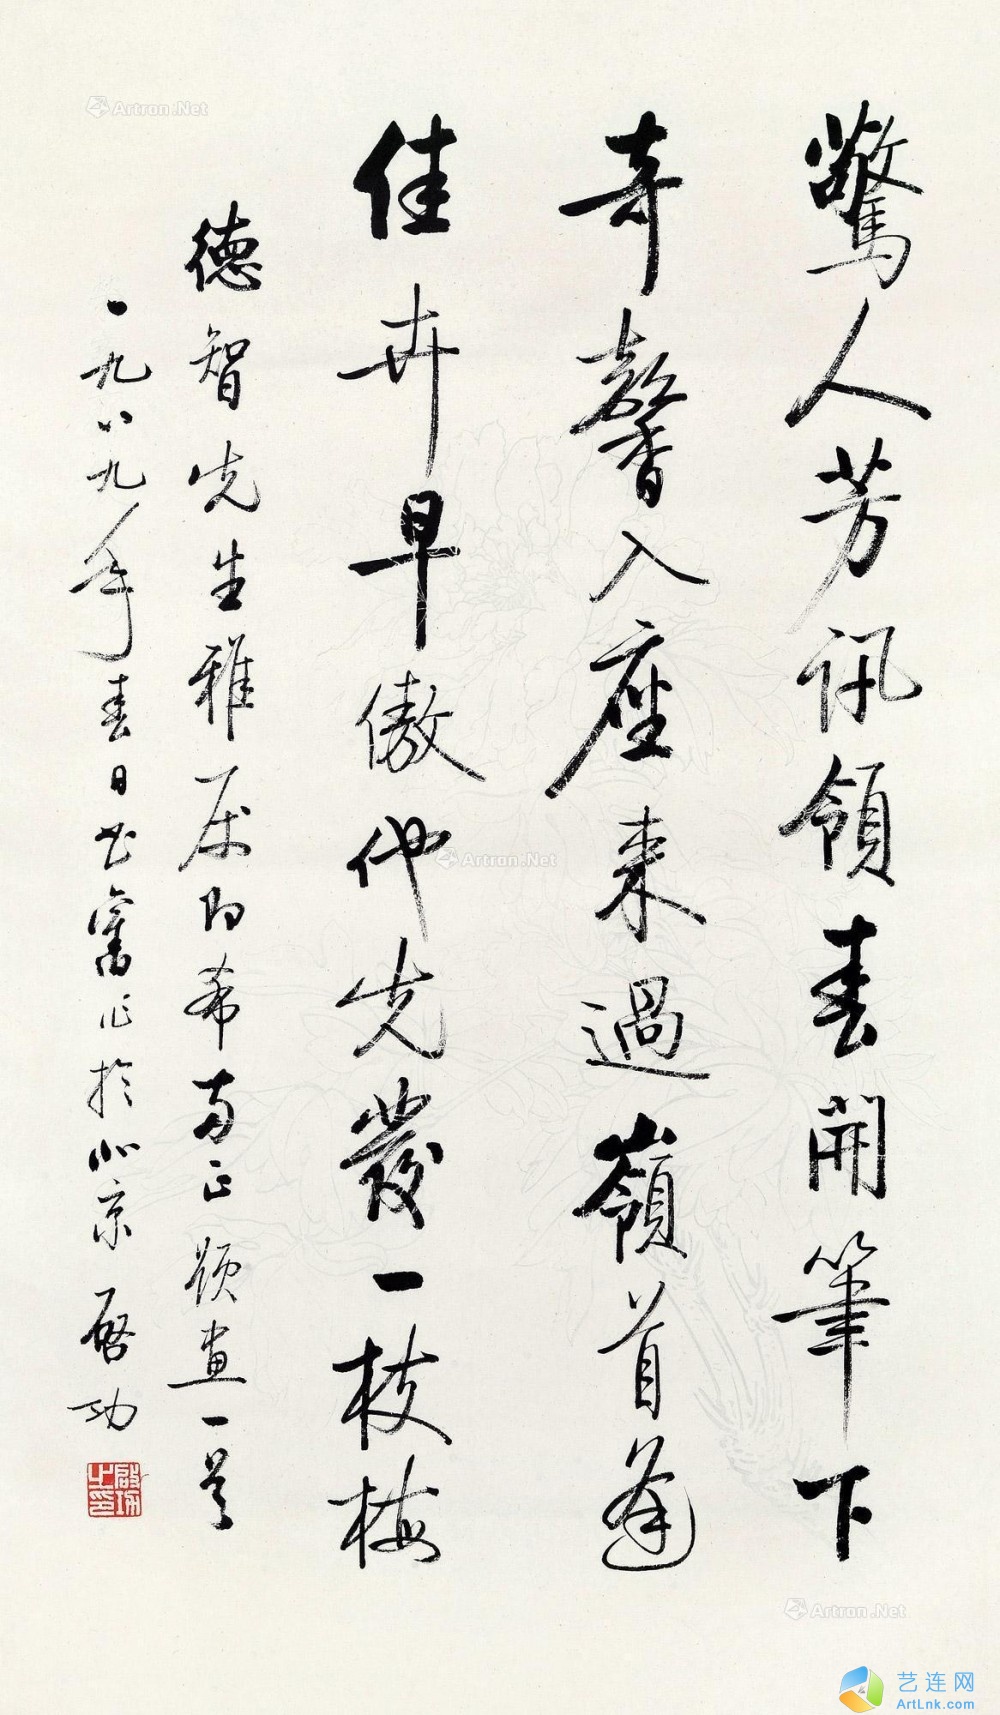 驚人芳訊領春開筆下
奇馨入座來過嶺首逢
佳卉早傲他先發一枝梅
德智先生雅屬即希兩正題畫一首
一九八九年春日書舊作於北京 啓功
啟功之印
Artron.Net
Artron.Net
Artron.Net
艺连网
ArtLnk.com